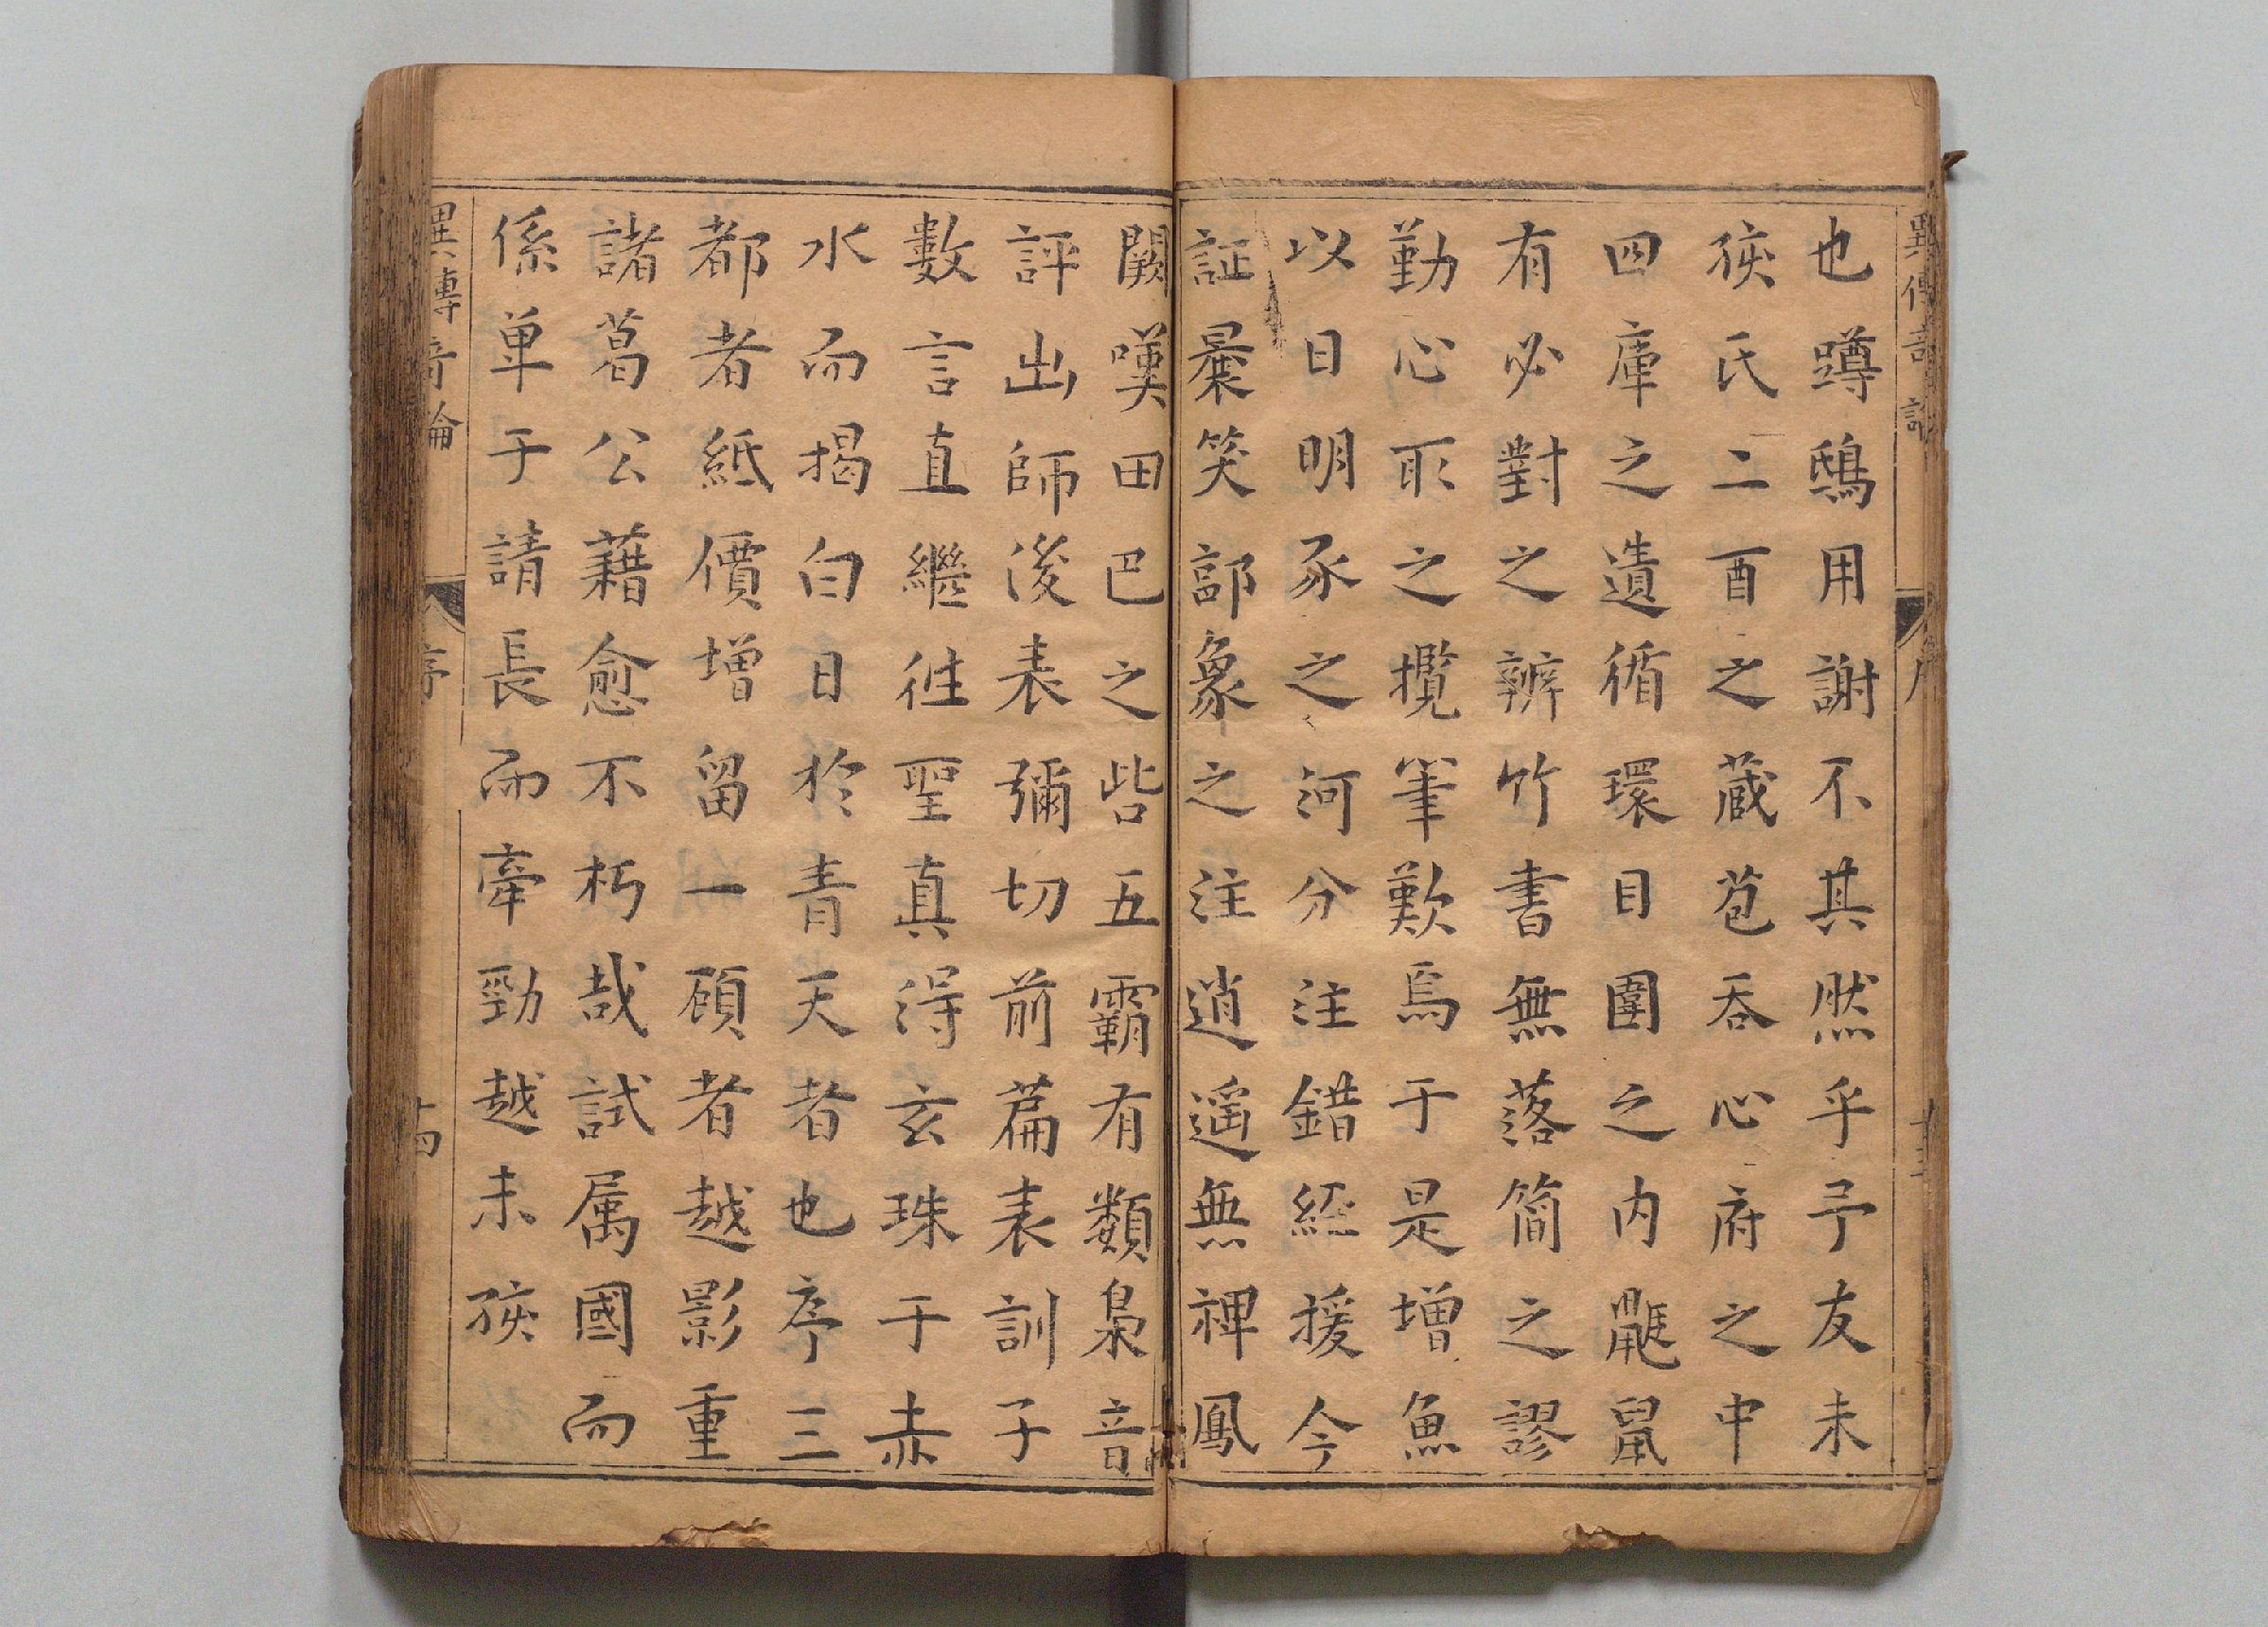 異傳音論
序
十三
也蹲鴟用謝不其然乎予友未
孩氏二酉之蔵苞呑心府之中
四庫之遺循環目圍之内鼮鼠
有必對之辨竹書無落簡之謬
勤心取之攬筆歎焉于是增魚
以日明豕之河分注錯経援今
証彙笑郭象之注逍遥無禆鳳
闕嘆田巴之呰五霸有類梟音
評出師後表彌切前篇表訓子
數言直繼徃聖真淂玄珠于赤
水而揭白日於青天者也序三
都者紙價增留一頋者越影重
諸葛公藉愈不朽哉試属國而
係单于請長而牽勁越未孩
異傳音論
序
十四